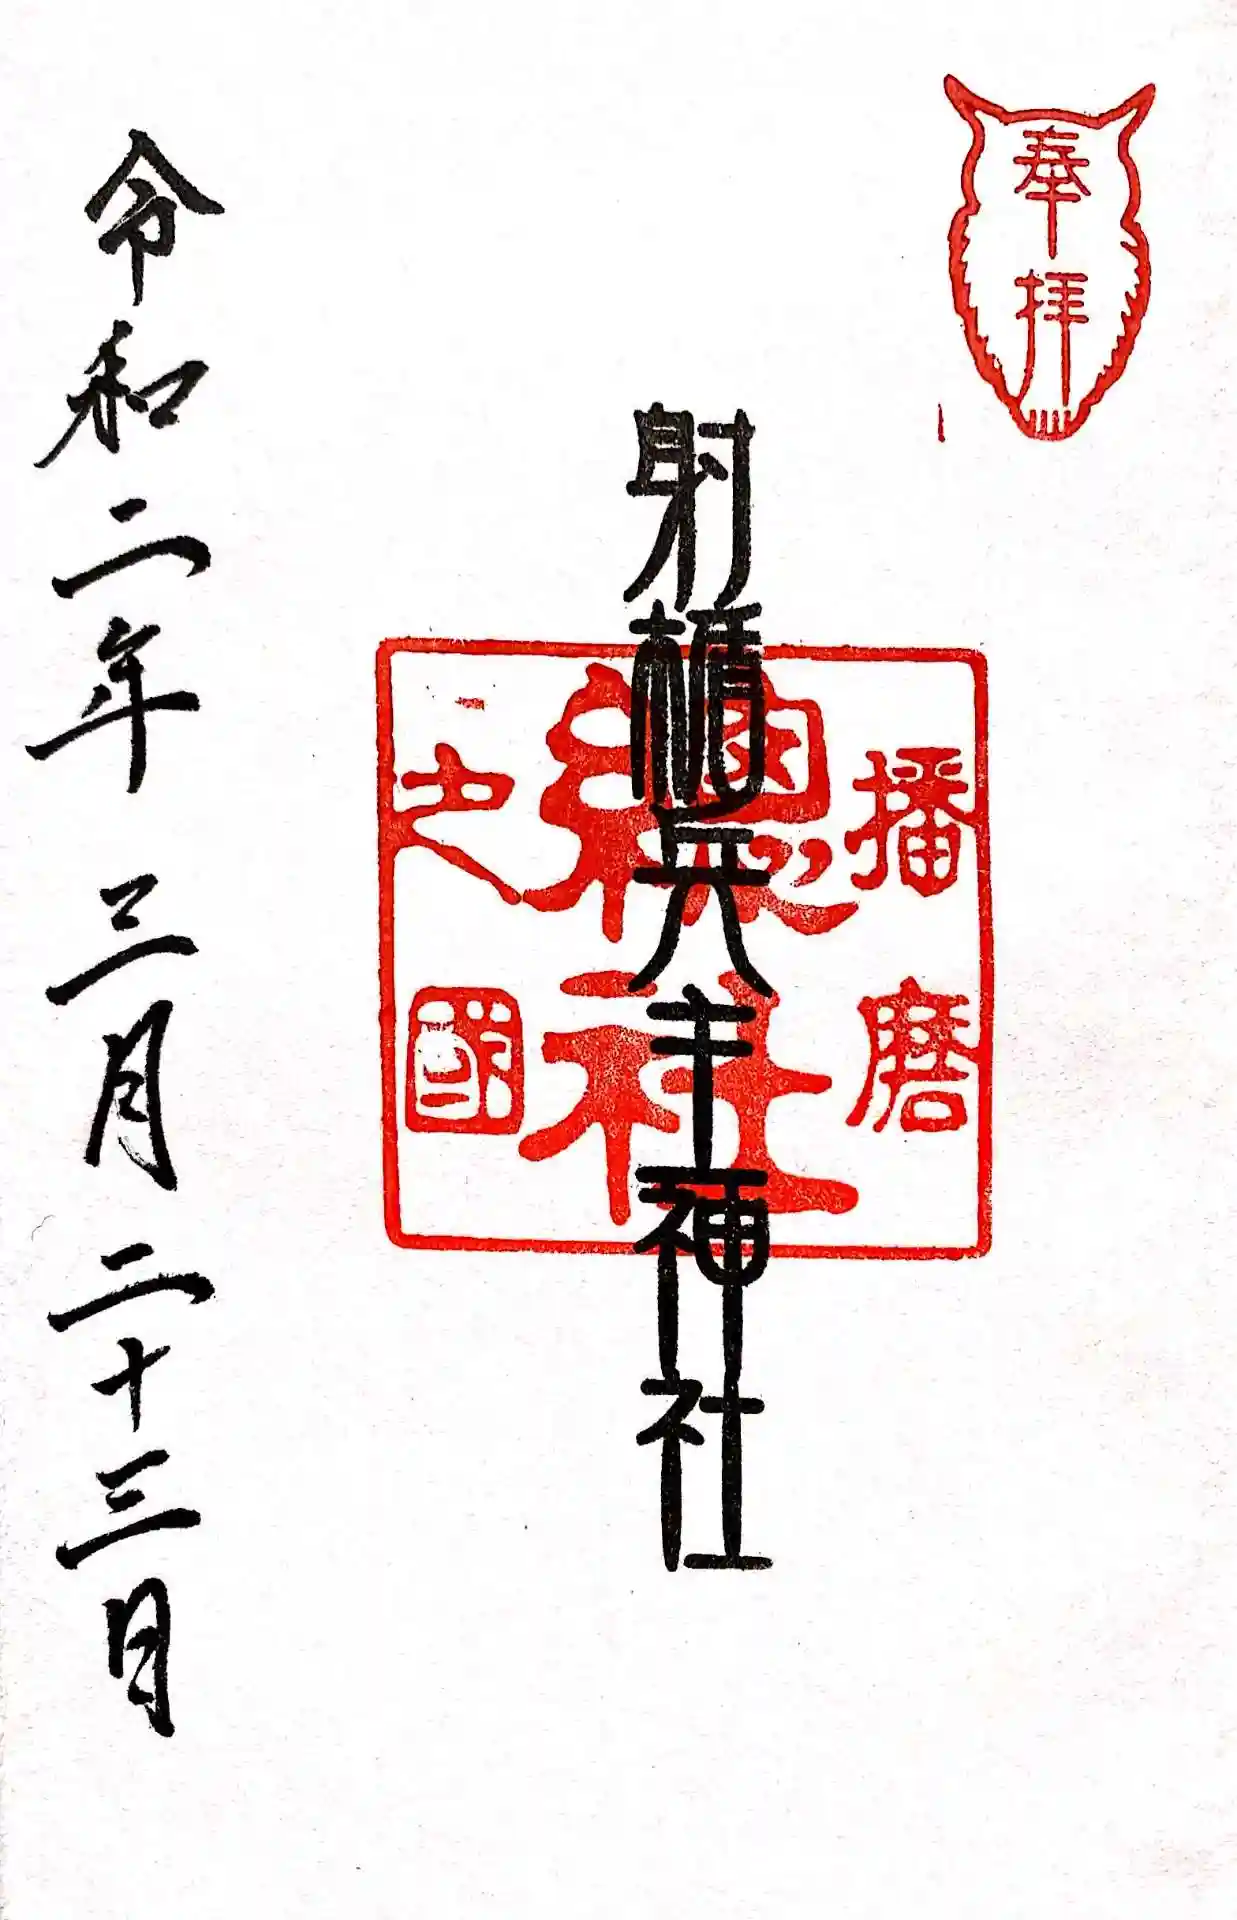 奉拝
射楯兵主神社
播磨
總社
之國
令和二年三月二十三日